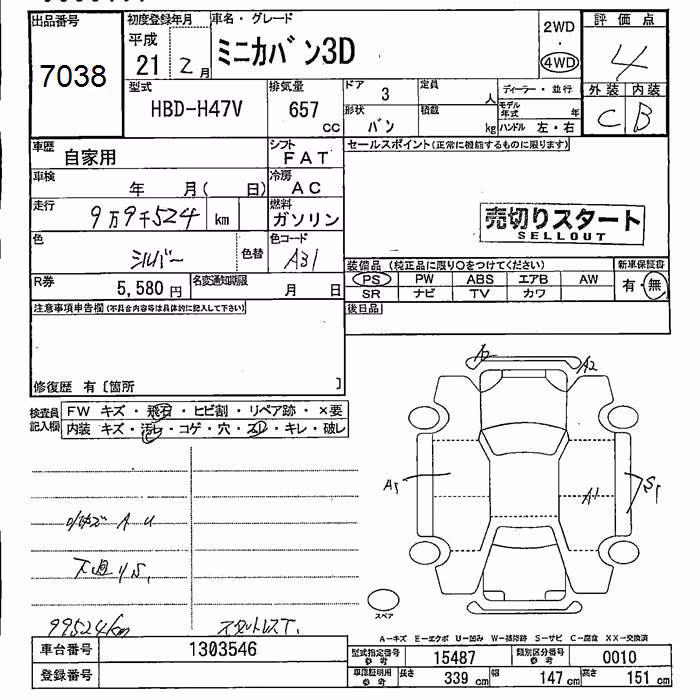 出品番号
7038
初度登録年月
平成
21 2月
車名・グレード
ミニカバン3D
2WD
・
4WD
評価点
4
外装 内装
C B
型式
HBD-H47V
排気量
657
cc
ドア
3
定員
人
形状
バン
積載
kg
ディーラー・並行
モデル年式 年
ハンドル 左・右
車歴
自家用
シフト
FAT
車検
年 月( 日)
冷房
AC
走行
9万9千524 km
燃料
ガソリン
色
シルバー
色替
色コード
A31
R券
5,580円
名変通知期限
月 日
セールスポイント(正常に機能するものに限ります)
売切りスタート
SELLOUT
装備品 (純正品に限り○をつけてください)
PS PW ABS エアB AW
SR ナビ TV カワ
新車保証書
有・無
後日品
注意事項申告欄(不具合内容等は具体的に記入して下さい)
修復歴 有〔箇所 〕
検査員
記入欄
FW キズ・飛石・ヒビ割・リペア跡・×要
内装 キズ・汚レ・コゲ・穴・スレ・キレ・破レ
A U
下廻りS,
99524km
スタットレスT.
A2
A2
A1
S1
スペア
A-キズ E-エクボ U-凹み W-補修跡 S-サビ C-腐食 XX-交換済
車台番号
1303546
登録番号
型式指定番号
参考
15487
類別区分番号
参考
0010
車庫証明用
参考
長さ 339cm 幅 147cm 高さ 151cm